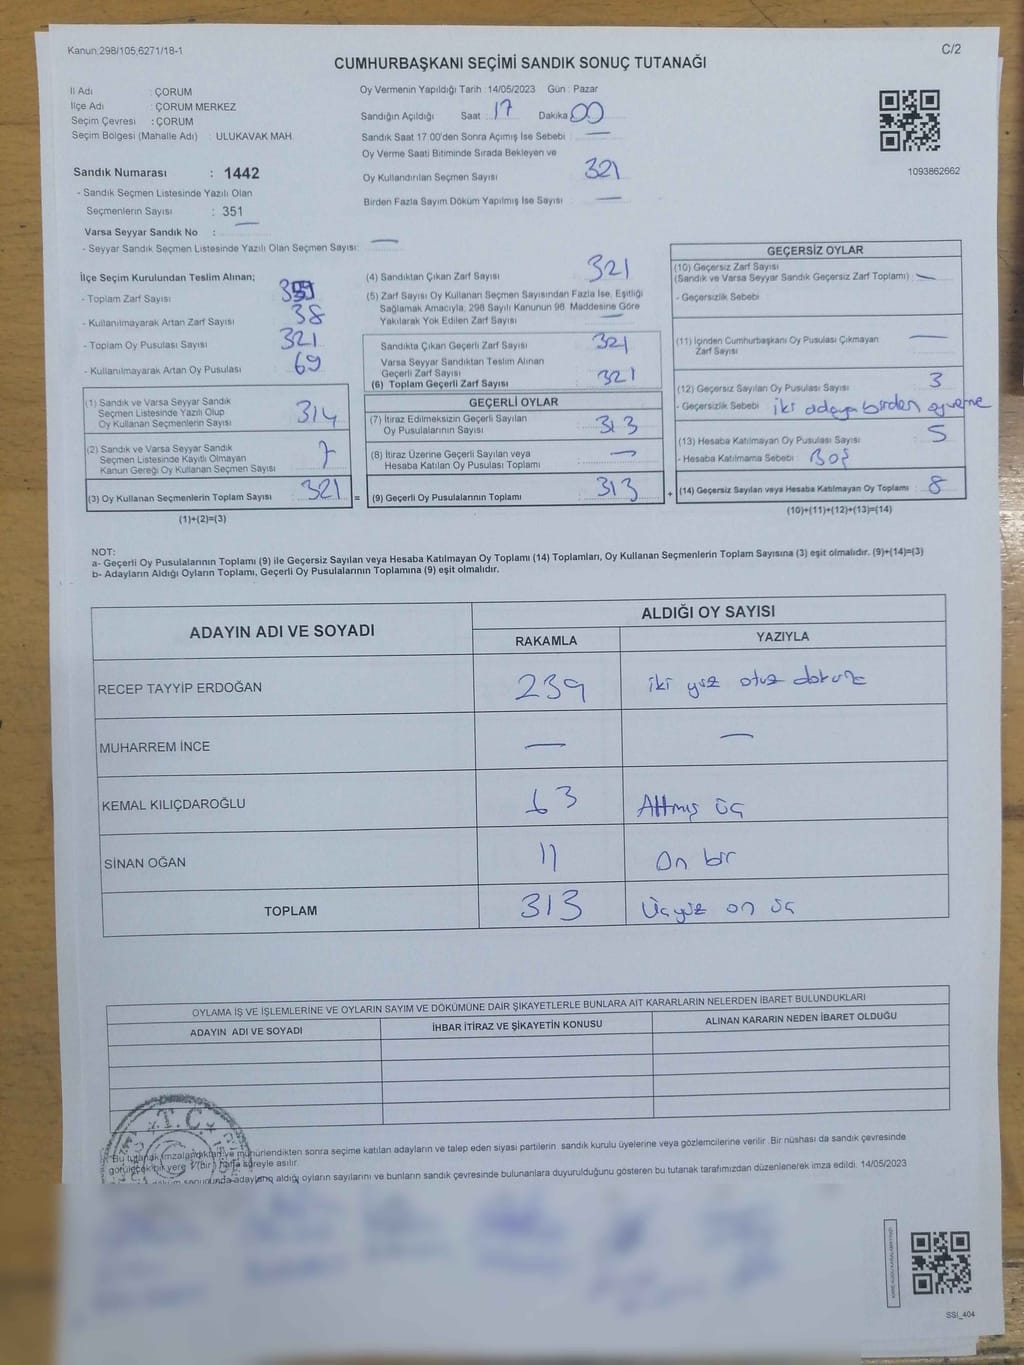 Kanun,298/105,6271/18-1
C/2
CUMHURBAŞKANI SEÇİMİ SANDIK SONUÇ TUTANAĞI
İl Adı : ÇORUM
İlçe Adı : ÇORUM MERKEZ
Seçim Çevresi : ÇORUM
Seçim Bölgesi (Mahalle Adı) : ULUKAVAK MAH.
Sandık Numarası : 1442
- Sandık Seçmen Listesinde Yazılı Olan
Seçmenlerin Sayısı : 351
Varsa Seyyar Sandık No : —
- Seyyar Sandık Seçmen Listesinde Yazılı Olan Seçmen Sayısı: —
Oy Vermenin Yapıldığı Tarih :14/05/2023 Gün : Pazar
Sandığın Açıldığı Saat : 17 Dakika : 00
Sandık Saat 17:00'den Sonra Açımış İse Sebebi : —
Oy Verme Saati Bitiminde Sırada Bekleyen ve
Oy Kullandırılan Seçmen Sayısı 321
Birden Fazla Sayım Döküm Yapılmış İse Sayısı : —
1093862662
İlçe Seçim Kurulundan Teslim Alınan;
- Toplam Zarf Sayısı
- Kullanılmayarak Artan Zarf Sayısı : 38
- Toplam Oy Pusulası Sayısı : 321
- Kullanılmayarak Artan Oy Pusulası : 69
(1) Sandık ve Varsa Seyyar Sandık
Seçmen Listesinde Yazılı Olup
Oy Kullanan Seçmenlerin Sayısı : 314
(2) Sandık ve Varsa Seyyar Sandık
Seçmen Listesinde Kayıtlı Olmayan
Kanun Gereği Oy Kullanan Seçmen Sayısı : 7
(3) Oy Kullanan Seçmenlerin Toplam Sayısı : 321 =
(1)+(2)=(3)
(4) Sandıktan Çıkan Zarf Sayısı 321
(5) Zarf Sayısı Oy Kullanan Seçmen Sayısından Fazla İse, Eşitliği
Sağlamak Amacıyla, 298 Sayılı Kanunun 98. Maddesine Göre
Yakılarak Yok Edilen Zarf Sayısı : —
Sandıkta Çıkan Geçerli Zarf Sayısı : 321
Varsa Seyyar Sandıktan Teslim Alınan
Geçerli Zarf Sayısı
(6) Toplam Geçerli Zarf Sayısı : 321
GEÇERLİ OYLAR
(7) İtiraz Edilmeksizin Geçerli Sayılan
Oy Pusulalarının Sayısı : 313
(8) İtiraz Üzerine Geçerli Sayılan veya
Hesaba Katılan Oy Pusulası Toplamı : —
(9) Geçerli Oy Pusulalarının Toplamı : 313 +
GEÇERSİZ OYLAR
(10) Geçersiz Zarf Sayısı
(Sandık ve Varsa Seyyar Sandık Geçersiz Zarf Toplamı) : —
- Geçersizlik Sebebi
(11) İçinden Cumhurbaşkanı Oy Pusulası Çıkmayan
Zarf Sayısı —
(12) Geçersiz Sayılan Oy Pusulası Sayısı : 3
- Geçersizlik Sebebi : iki adaya birden
(13) Hesaba Katılmayan Oy Pusulası Sayısı : 5
- Hesaba Katılmama Sebebi : Boş
(14) Geçersiz Sayılan veya Hesaba Katılmayan Oy Toplamı : 8
(10)+(11)+(12)+(13)=(14)
NOT:
a- Geçerli Oy Pusulalarının Toplamı (9) ile Geçersiz Sayılan veya Hesaba Katılmayan Oy Toplamı (14) Toplamları, Oy Kullanan Seçmenlerin Toplam Sayısına (3) eşit olmalıdır. (9)+(14)=(3)
b- Adayların Aldığı Oyların Toplamı, Geçerli Oy Pusulalarının Toplamına (9) eşit olmalıdır.
ADAYIN ADI VE SOYADI
ALDIĞI OY SAYISI
RAKAMLA YAZIYLA
RECEP TAYYİP ERDOĞAN 239 iki yüz otuz dokuz
MUHARREM İNCE — —
KEMAL KILIÇDAROĞLU 63 Altmış üç
SİNAN OĞAN 11 On bir
TOPLAM 313 Üçyüz on üç
OYLAMA İŞ VE İŞLEMLERİNE VE OYLARIN SAYIM VE DÖKÜMÜNE DAİR ŞİKAYETLERLE BUNLARA AİT KARARLARIN NELERDEN İBARET BULUNDUKLARI
ADAYIN ADI VE SOYADI İHBAR İTİRAZ VE ŞİKAYETİN KONUSU ALINAN KARARIN NEDEN İBARET OLDUĞU
T.C.
Bu tutanak imzalandıktan ve mühürlendikten sonra seçime katılan adayların ve talep eden siyasi partilerin sandık kurulu üyelerine veya gözlemcilerine verilir. Bir nüshası da sandık çevresinde
görülecek bir yere 1 (bir) hafta süreyle asılır.
sonunda adayların aldığı oyların sayılarını ve bunların sandık çevresinde bulunanlara duyurulduğunu gösteren bu tutanak tarafımızdan düzenlenerek imza edildi. 14/05/2023
SSI_404